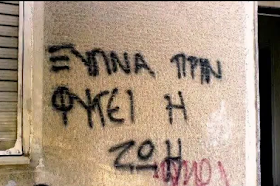 ΞΥΠΝΑ ΠΡΙΝ
ΦΥΓΕΙ Η
ΖΩΗ